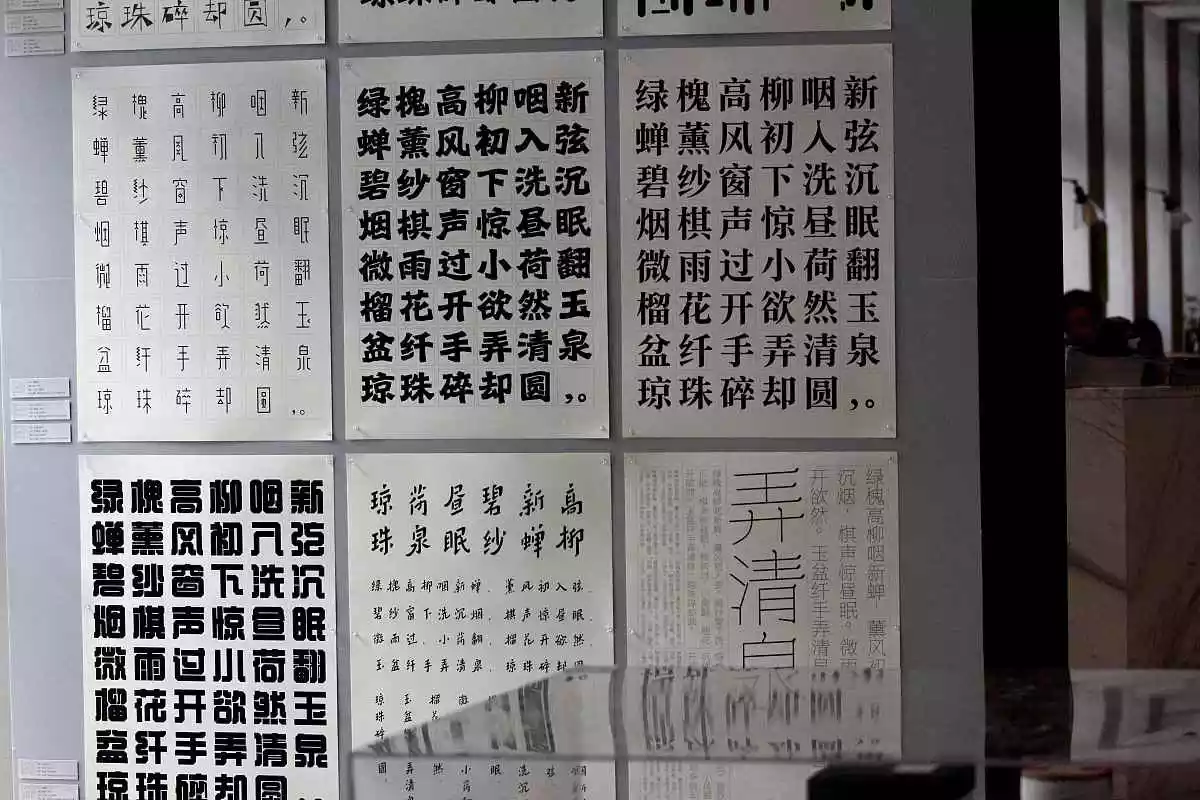 琼珠碎却圆,。
绿槐高柳咽新
蝉薰风初入弦
碧纱窗下洗沉
烟棋声惊昼眠
微雨过小荷翻
榴花开欲然玉
盆纤手弄清泉
琼珠碎却圆,。
绿槐高柳咽新
蝉薰风初入弦
碧纱窗下洗沉
烟棋声惊昼眠
微雨过小荷翻
榴花开欲然玉
盆纤手弄清泉
琼珠碎却圆,。
绿槐高柳咽新
蝉薰风初入弦
碧纱窗下洗沉
烟棋声惊昼眠
微雨过小荷翻
榴花开欲然玉
盆纤手弄清泉
琼珠碎却圆,。
绿槐高柳咽新
蝉薰风初入弦
碧纱窗下洗沉
烟棋声惊昼眠
微雨过小荷翻
榴花开欲然玉
盆纤手弄清泉
琼珠碎却圆,。
琼荷昼碧新高
珠泉眠纱蝉柳
绿槐高柳咽新蝉、薰风初入弦、
碧纱窗下洗沉烟、棋声惊昼眠、
微雨过、小荷翻、榴花开欲然、
玉盆纤手弄清泉、琼珠碎却圆
绿槐高柳咽新蝉,薰风初
沉烟,棋声惊昼眠。微雨
开欲然。玉盆纤手弄清泉
弄清泉